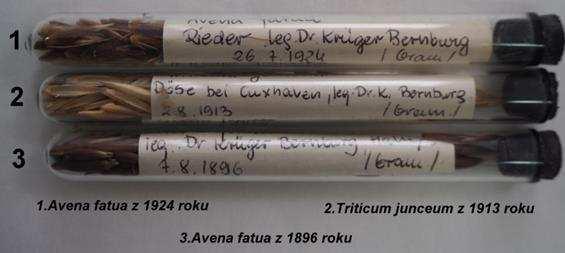 1
Avena
Rieder leg Dr Krüger Bernburg
26 7. 1924 /Gram/
2
Döse bei Cuxhaven, leg. Dr. K. Bernburg
2.8.1913 /Gram./
3
leg. Dr Krüger Bernburg
7. 8. 1896 /Gram./
1.Avena fatua z 1924 roku
2.Triticum junceum z 1913 roku
3.Avena fatua z 1896 roku